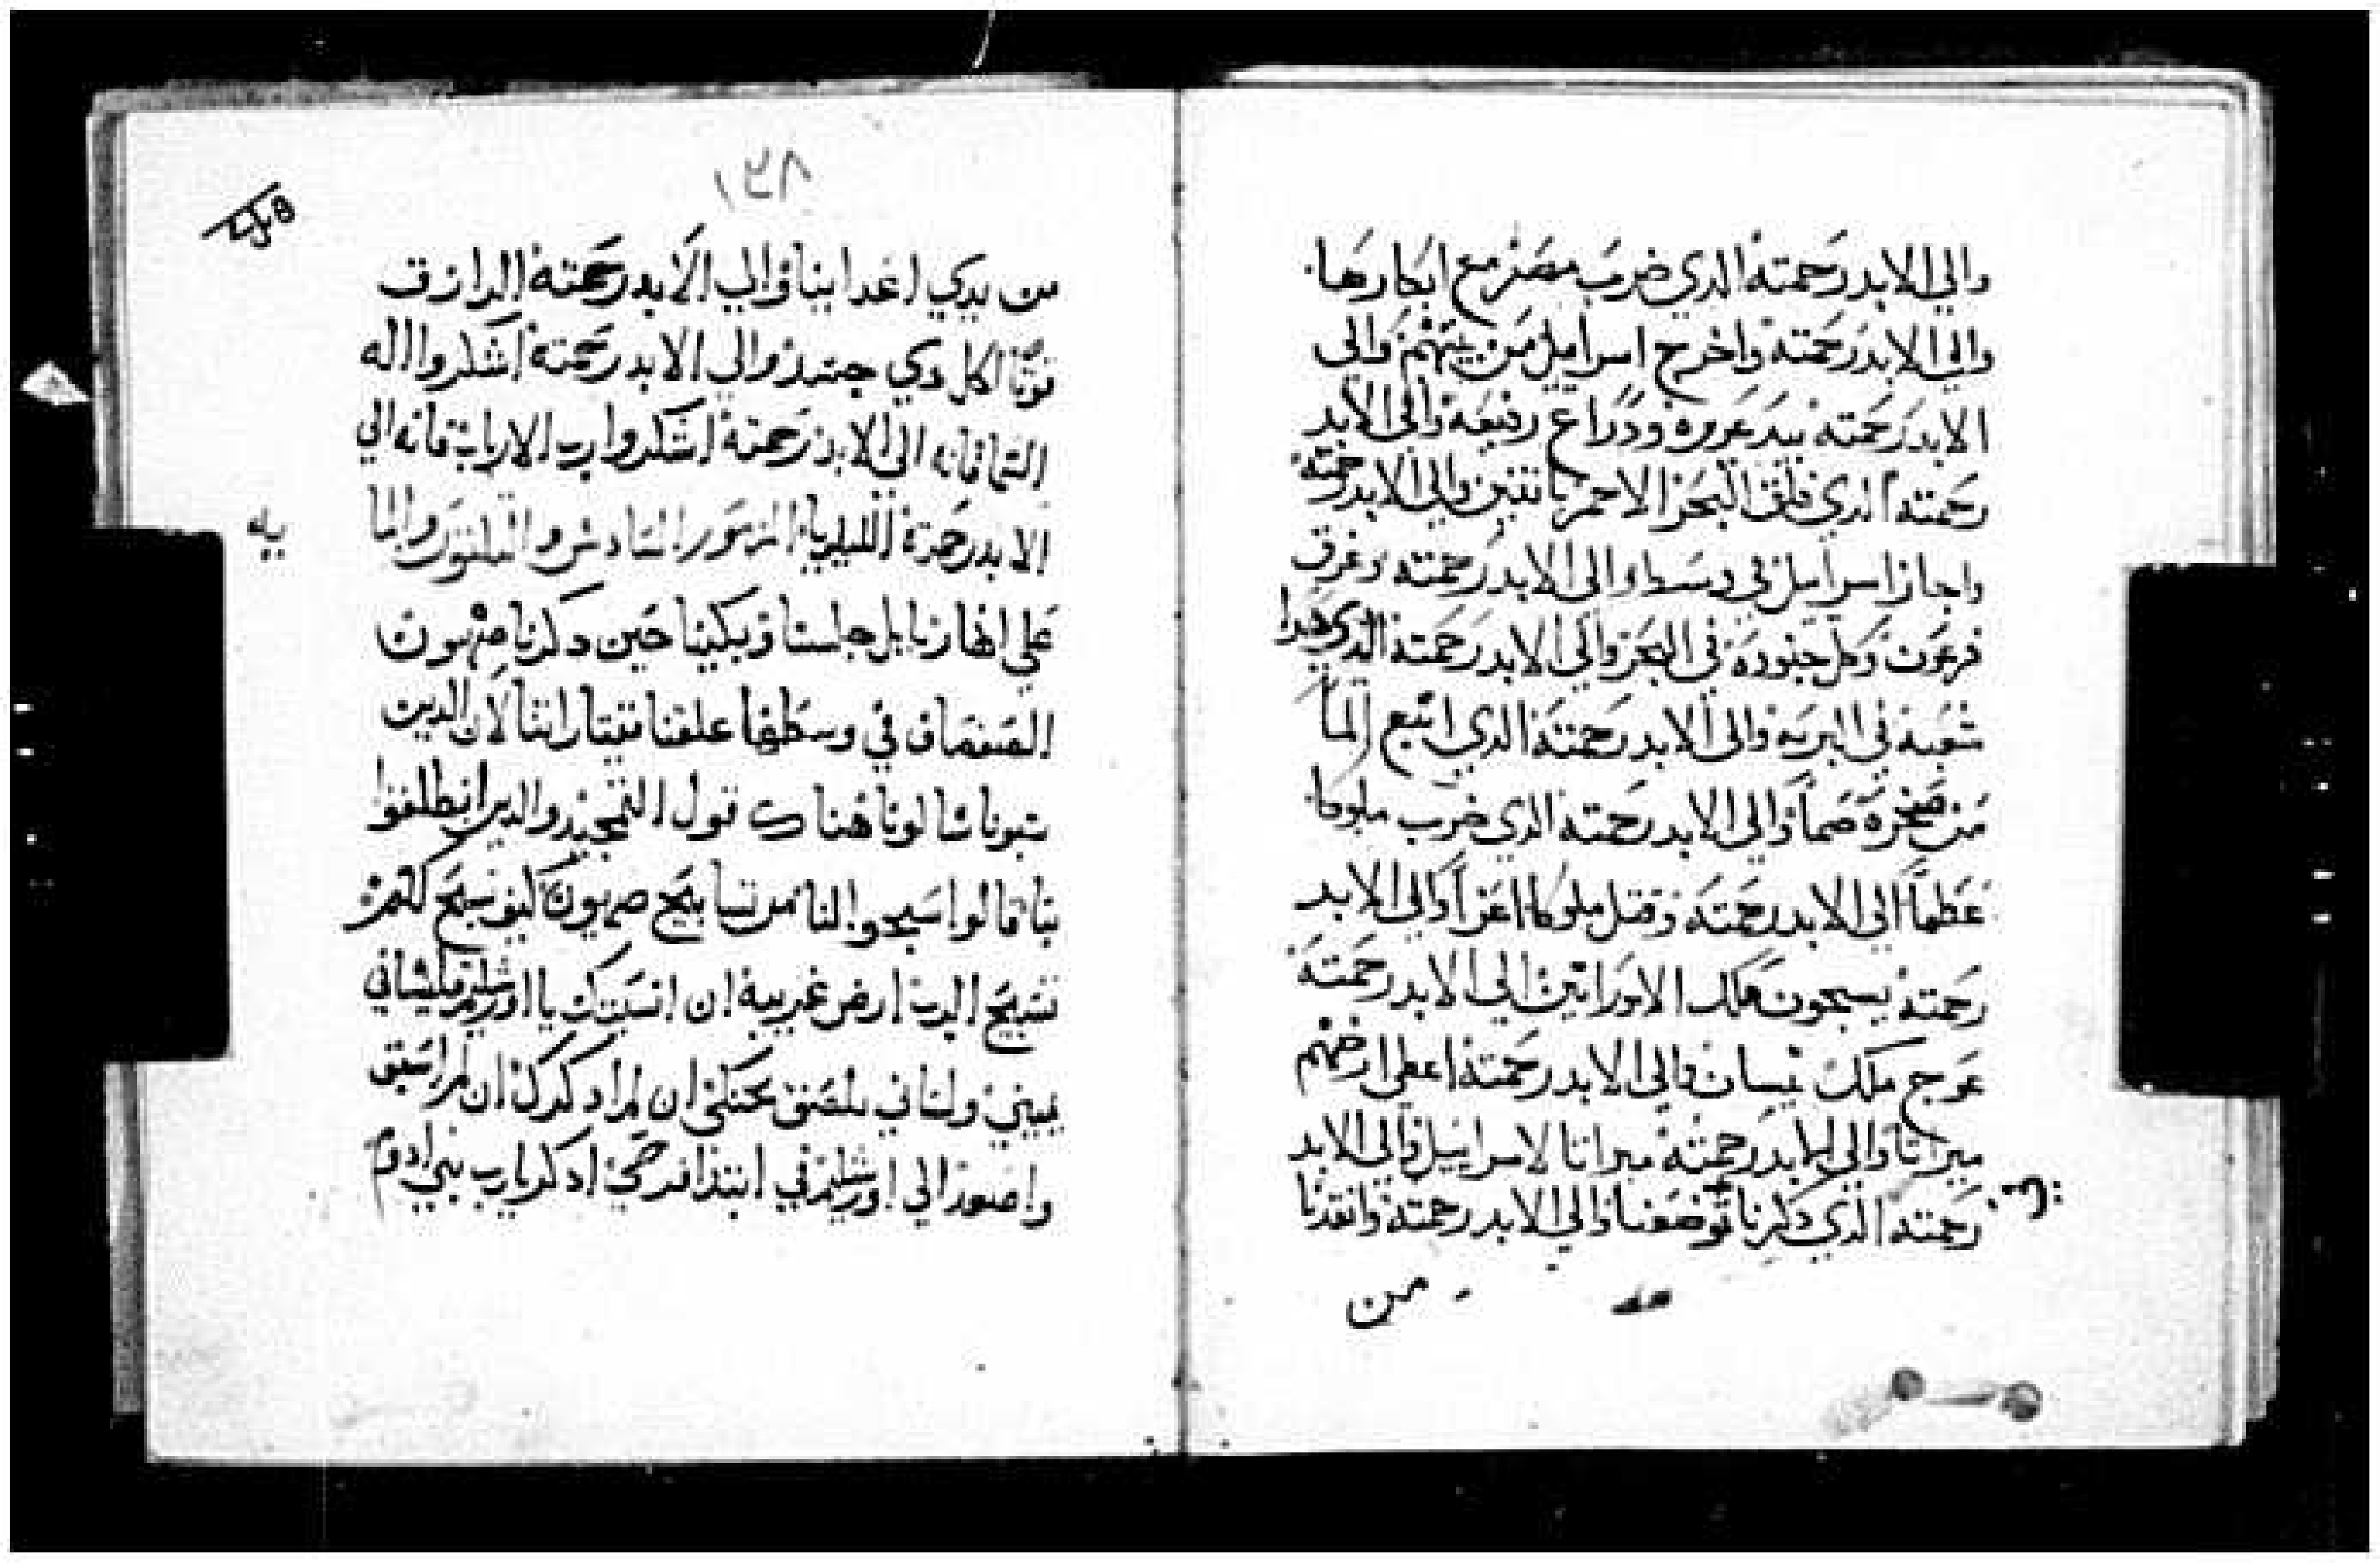 والي الابد رحمته الدي ضرب مصر مع ابكارها
والي الابد رحمته واخرج اسراييل من بينهم والي
الابد رحمته بيد عزيزه ودراع رفيعه والي الابد
رحمته الدي فلق البحر الاحمر باثنتين والي الابد رحمته
واجاز اسراييل في وسطه والي الابد رحمته وغرق
فرعون وكل جنوده في البحر والي الابد رحمته الدي هدا
شعبه في البريه والي الابد رحمته الدي انبع الما
من صخره صما والي الابد رحمته الدي ضرب ملوكا
عظما الي الابد رحمته وقتل ملوكا اعزا والي الابد
رحمته يسيحون ملك الاموراتين الي الابد رحمته
عوج ملك بيسان والي الابد رحمته اعطي ارضهم
ميراتا والي الابد رحمته ميراتا لاسراييل والي الابد
رحمته الذي دكرنا توضعنا والي الابد رحمته وانقدنا
من
١٣٨
من يدي اعداينا والي الابد رحمته الرازق
قوتا لكل دي جسد والي الابد رحمته اشكروا اله
السما فانه الي الابد رحمته اشكروا رب الارباب فانه الي
الابد رحمته الليلويا المزمور السادس والتلتون والما
يه
علي انهار بابل جلسنا وبكينا حين دكرنا صهيون
الصفصاف في وسطها علقنا قيتاراتنا لان الدين
سبونا سالونا هناك قول التمجيد والدين انطلقوا
بنا قالوا سبحوا لنا من تسابيح صهيون كيف نسبح لكم
تسبيح الرب ارض غريبه ان انسيتك يا اورشليم
يميني ولساني يلصق بحنكي ان لم ادكرك ان لم اسبق
واصعد الي اورشليم في ابتدا فرحي ادكر يارب بني ادوم